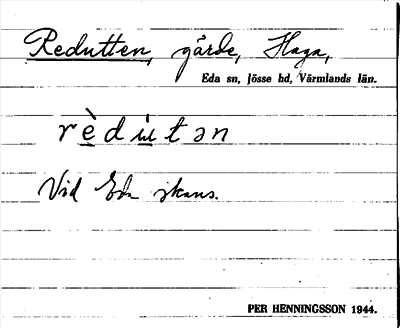 Redutten, gärde, Haga,
Eda sn, Jösse hd, Värmlands län.
rèdùtən
Vid Eda skans.
PER HENNINGSSON 1944.